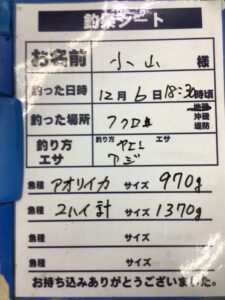 釣果シート
お名前 小山 様
釣った日時 12月6日18:30時頃
釣った場所 フクロ 沖磯 堤防
釣り方 エサ 釣り方 ヤエン エサ
アジ
魚種 アオリイカ サイズ 970g
魚種 2ハイ計 サイズ 1370g
魚種 サイズ
魚種 サイズ
お持ち込みありがとうございました。